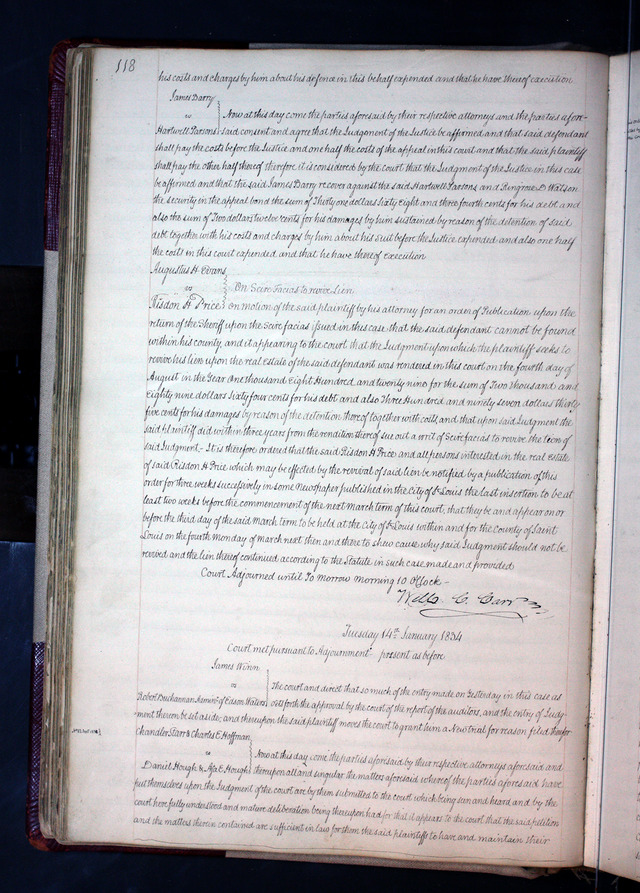 118
his costs and charges by him about his defence in this behalf expended and that he have thereof execution
James Darry
vs
Hartwell Parsons
Now at this day come the parties aforesaid by their respective attorneys and the parties afore-
said consent and agree that the Judgment of the Justice be affirmed and that said defendant
shall pay the costs before the Justice and one half the costs of the appeal in this court and that the said plaintiff
shall pay the other half thereof therefore it is considered by the court that the Judgment of the Justice in this case
be affirmed and that the said James Darry recover against the said Hartwell Parsons and D Watson
the security in the appeal bond the sum of Thirty one dollars Sixty eight and three fourth cents for his debt and
also the sum of Two dollars twelve cents for his damages by him sustained by reason of the detention of said
debt together with his costs and charges by him about his suit before the Justice expended and also one half
the costs in this court expended and that he have thereof execution
Augustus H. Evans
vs
On Scire Facias to revive lien
Risdon H Price
on motion of the said plaintiff by his attorney for an order of Publication upon the
return of the Sheriff upon the Scire facias issued in this case that the said defendant cannot be found
within his county, and it appearing to the court that the Judgment upon which the plaintiff seeks to
revive his lien upon the real estate of the said defendant was rendered in this court on the fourth day of
August in the Year One thousand Eight Hundred and twenty nine for the sum of Two thousand and
Eighty nine dollars Sixty four cents for his debt and also Three Hundred and ninety seven dollars Thirty
five cents for his damages by reason of the detention thereof together with costs, and that upon said Judgment the
said plaintiff did within three years from the rendition thereof sue out a writ of Scire facias to revive the lien of
said Judgment- It is therefore ordered that the said Risdon H Price and all persons interested in the real estate
of said Risdon H Price which may be effected by the revival of said lien be notified by a publication of this
order for three weeks successively in some Newspaper published in the City of St Louis the last insertion to be at
least two weeks before the commencement of the next march term of this court, that they be and appear on or
before the third day of the said march term to be held at the City of St Louis within and for the County of Saint
Louis on the fourth monday of march next then and there to shew cause why said Judgment should not be
revived and the lien thereof continued according to the Statute in such case made and provided
Court Adjourned until To morrow morning 10 O'Clock -
Wm C. Carr
Tuesday 14th January 1834
Court met pursuant to Adjournment present as before
James Winn
vs
Robert Buchannan Admin of Edson Watson
The court and direct that so much of the entry made on Yesterday in this case as
sets forth the approval by the court of the report of the auditors, and the entry of Judg-
ment thereon be set aside; and thereupon the said plaintiff moves the court to grant him a New trial for reason filed therefor
Chandler Starr & Charles E. Hoffman
vs
Daniel Hough & Asa E. Hough
Now at this day come the parties aforesaid by their respective attorneys aforesaid and
thereupon all and singular the matters aforesaid whereof the parties aforesaid have
put themselves upon the Judgment of the court are by them submitted to the court which being seen and heard and by the
court here fully understood and mature deliberation being thereupon had for that it appears to the court that the said petition
and the matters therein contained are sufficient in law for them the said plaintiffs to have and maintain their